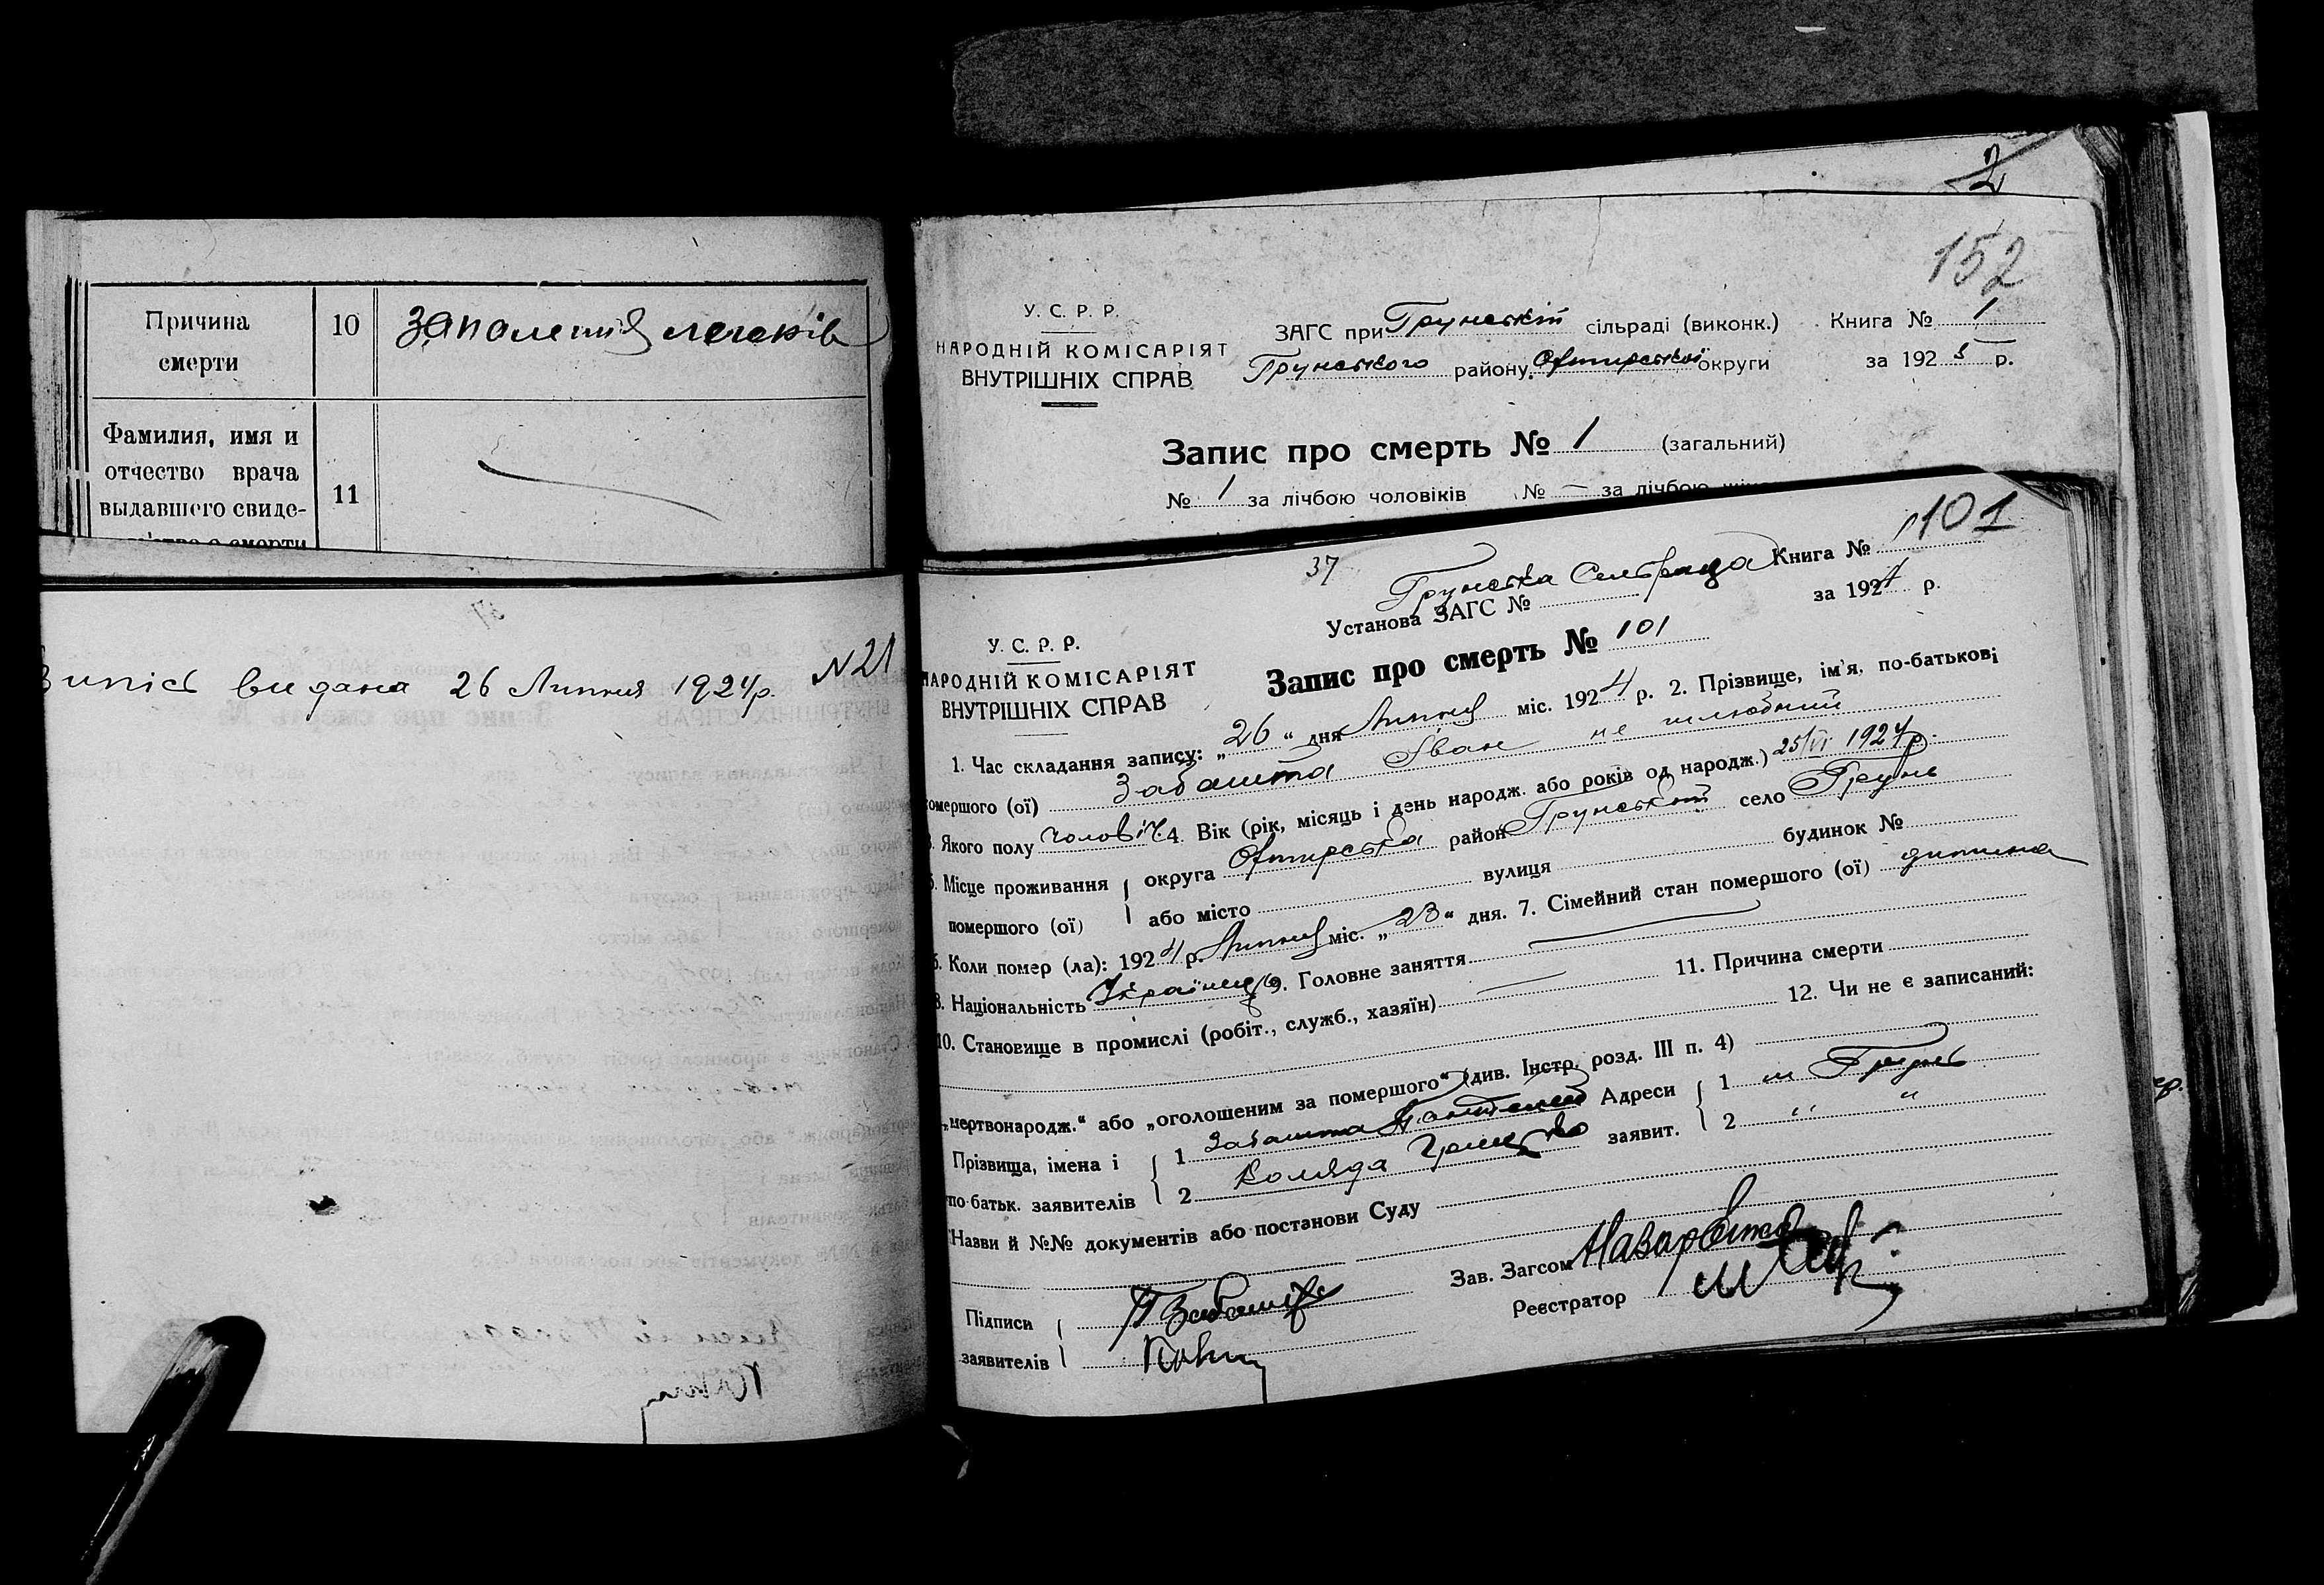 Причина
смерти
10
запалення легенів
Фамилия, имя и
отчество врача
выдавшего свиде-
11
Випісь видана 26 Липня 1924р. N21
2
152
У. С. Р. Р.
НАРОДНІЙ КОМІСАРІЯТ
ВНУТРІШНІХ СПРАВ
ЗАГС при Грунській сільраді (виконк.) Книга № 1
Грунського району, Охтирської округи за 192 5 р.
Запис про смерть № 1 (загальний)
№ 1 за лічбою чоловіків № — за лічбою
37
Грунська Сельрада Книга № 101
Установа ЗАГС № за 1924 р.
У. С. Р. Р.
НАРОДНІЙ КОМІСАРІЯТ
ВНУТРІШНІХ СПРАВ
Запис про смерть № 101
1. Час складання запису: „26“ дня Липня міс. 1924 р. 2. Прізвище, ім'я, по-батькові
помершого (ої) Забашта Іван не шлюбний
3. Якого полу чоловіч. 4. Вік (рік, місяць і день народж. або років од народж.) 25/VI 1924р.
5. Місце проживання округа Охтирська район Грунський село Грунь
помершого (ої) або місто вулиця будинок №
6. Коли помер (ла): 1924 р. Липня міс. „23“ дня. 7. Сімейний стан помершого (ої) дитина
8. Національність Українец 9. Головне заняття
10. Становище в промислі (робіт., служб., хазяїн) 11. Причина смерти
12. Чи не є записаний:
„мертвонародж.“ або „оголошеним за помершого“ (див. Інстр. розд. III п. 4)
Прізвища, імена і 1 Забашта Адреси 1 м Грунь
по батьк. заявителів 2 Коляда заявит. 2 " "
Назви й №№ документів або постанови Суду
Підписи П Забашта Зав. Загсом
заявителів Реєстратор